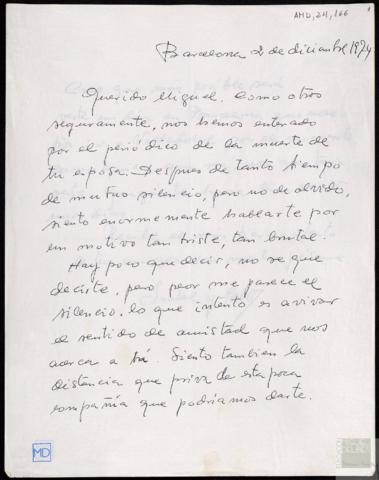 AMD, 24, 166
1
Barcelona 2 de diciembre 1974
Querido Miguel. Como otros
seguramente, nos hemos enterado
por el periódico de la muerte de
tu esposa. Despues de tanto tiempo
de mutuo silencio, pero no de olvido,
siento enormemente hablarte por
un motivo tan triste, tan brutal.
Hay poco que decir, no se que
decirte, pero peor me parece el
silencio. lo que intento es avivar
el sentido de amistad que nos
acerca a tí. Siento tambien la
distancia que priva de esta poca
compañía que podríamos darte.
MD